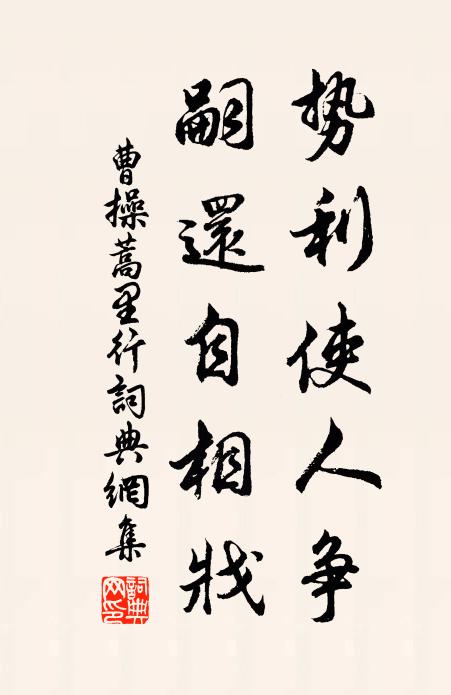 势利使人争
嗣還自相戕
曹操蒿里行詞典網集
詞典網印